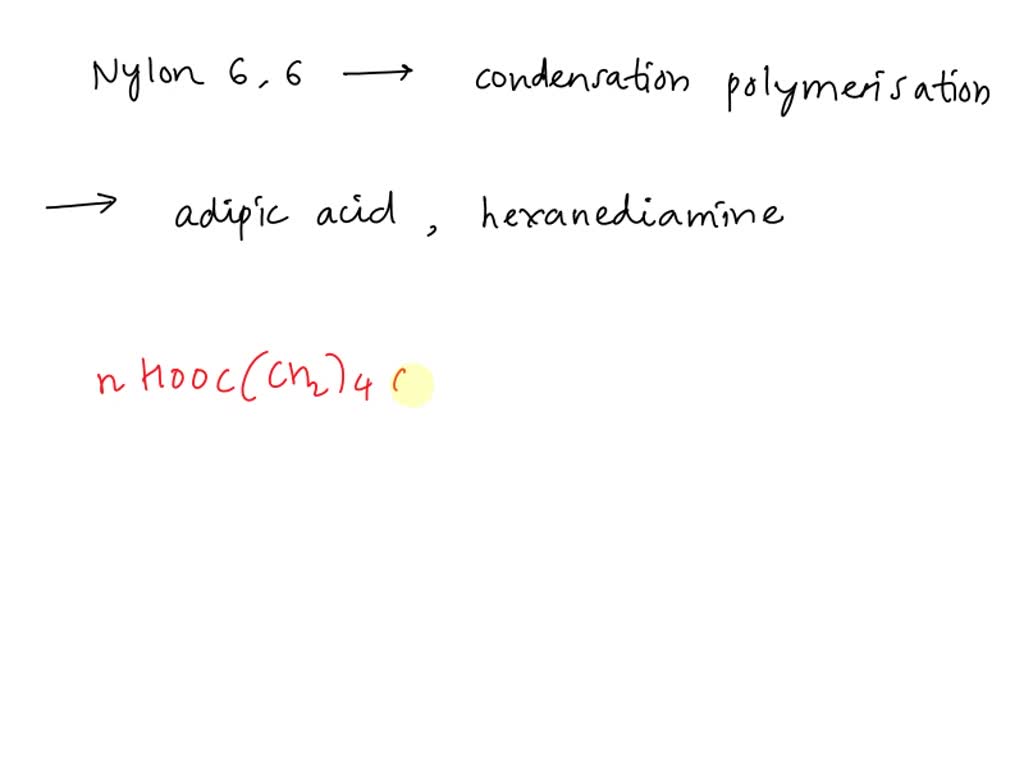 Nylon 6,6 → condensation polymerisation
→ adipic acid, hexanediamine
n HOOC(CH₂)₄ C